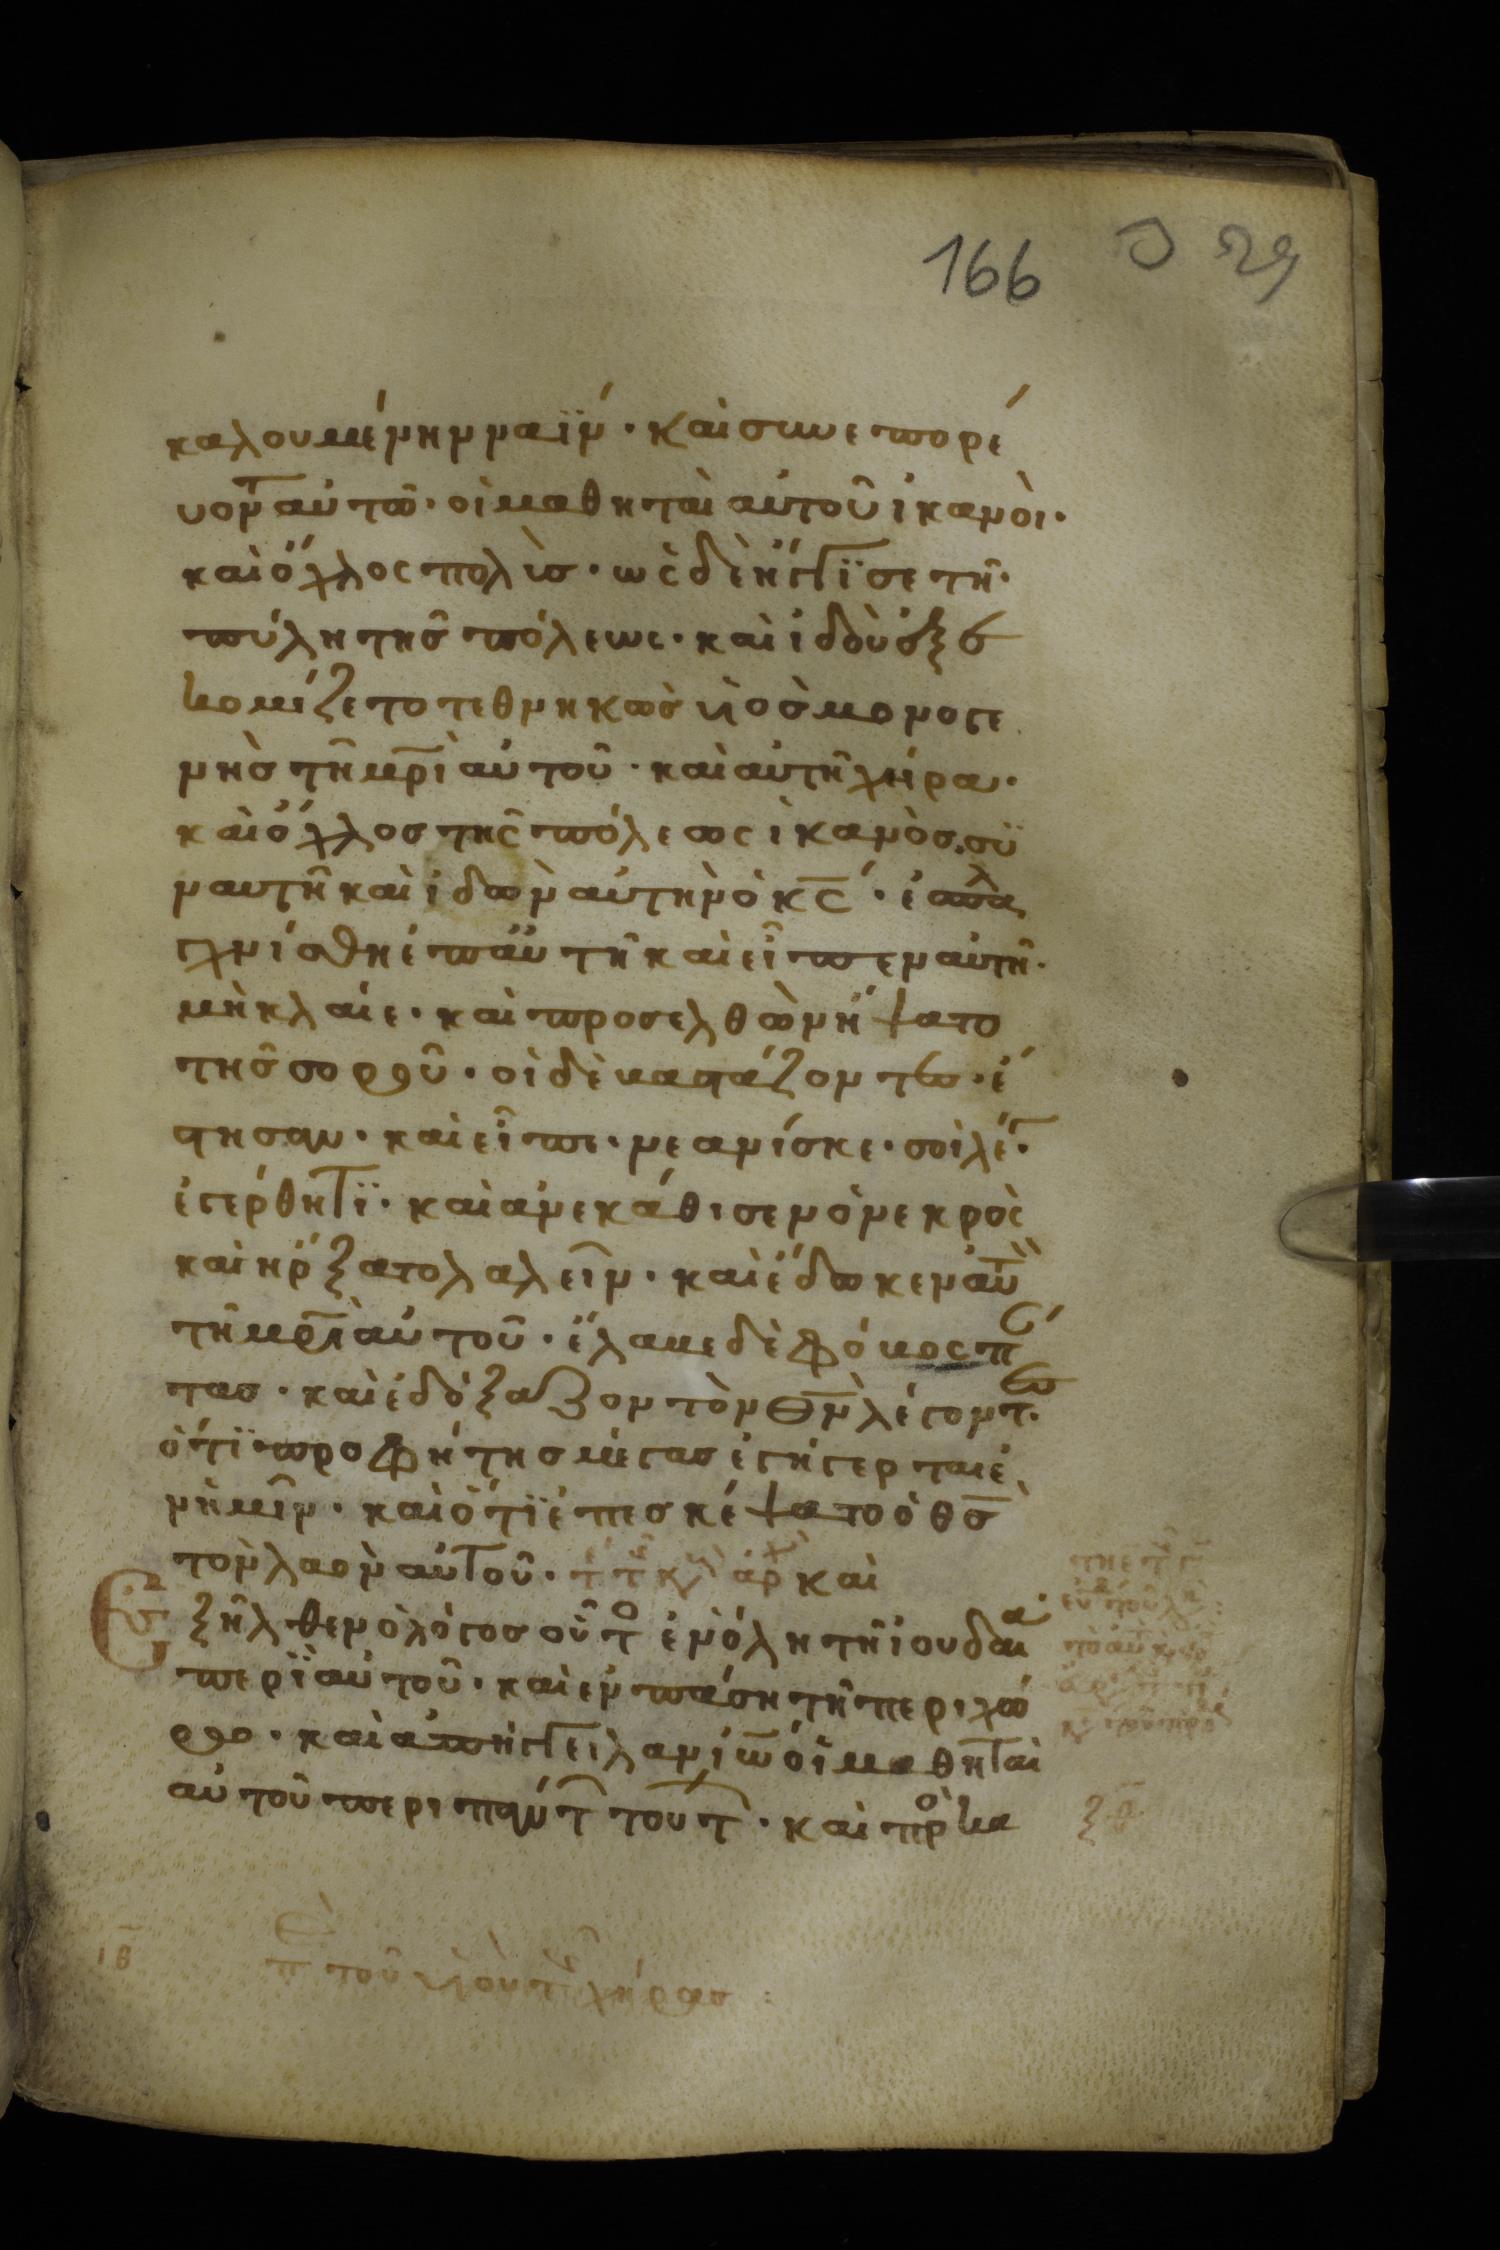 166
καλουμένην ναΐν · καὶ συνεπορέ
υοντ αὐτῶ · οἱ μαθηταὶ αὐτοῦ ἱκανοὶ ·
καὶ ὄχλος πολὺσ · ὡς δὲ ἤγγϊσε τῆ ·
πύλη τῆσ πόλεως · καὶ ἰδοὺ ἐξε
κομίζετο τεθνηκὼσ υἱοσ μονογε
νὴσ τῆ μρ̅ὶ αὐτοῦ · καὶ αὐτῆ χήρα ·
καὶ ὄχλοσ τῆς πόλεως ἱκανὸσ · σὺ
ν αυτῆ καὶ ἰδὼν αὐτὴν ὁ κς̅ · ἐσπλα
γχνίσθη ἐπ αὐτῆ καὶ εἶπεν αὐτῆ ·
μὴ κλαίε · καὶ προσελθὼν ἥψατο
τῆσ σοροῦ · οἱ δὲ βαστάζοντεσ · ἔ
στησαν · καὶ εἶπε · νεανίσκε · σοὶ λέγ ·
ἐγέρθητϊ · καὶ ἀνεκάθισεν ὁ νεκρὸς
καὶ ἤρξατο λαλεῖν · καὶ ἔδωκεν αὐτὸν
τῆ μρ̅ὶ αὐτοῦ · ἔλαβε δὲ φόβος πάν
τας · καὶ ἐδόξαζον τὸν θν̅ λέγοντες ·
ὅτϊ προφήτησ μέγασ ἐγήγερται ἐ
ν ἡμῖν · καὶ ὅτϊ ἐπεσκέψατο ὁ θσ̅
τὸν λαὸν αὐτοῦ · καὶ
Ἐξῆλθεν ὁ λόγοσ οὗτο ἐν ὅλη τῆ ἰουδαία
περὶ αὐτοῦ · καὶ ἐν πάση τῆ περιχώ
ρο · καὶ ἀπήγγειλαν ἰω̅ οἱ μαθηταὶ
αὐτοῦ περι πάντ τουτ · καὶ προσκα
ιβ̅
π τοῦ υἱοῦ τῆς χήρασ :